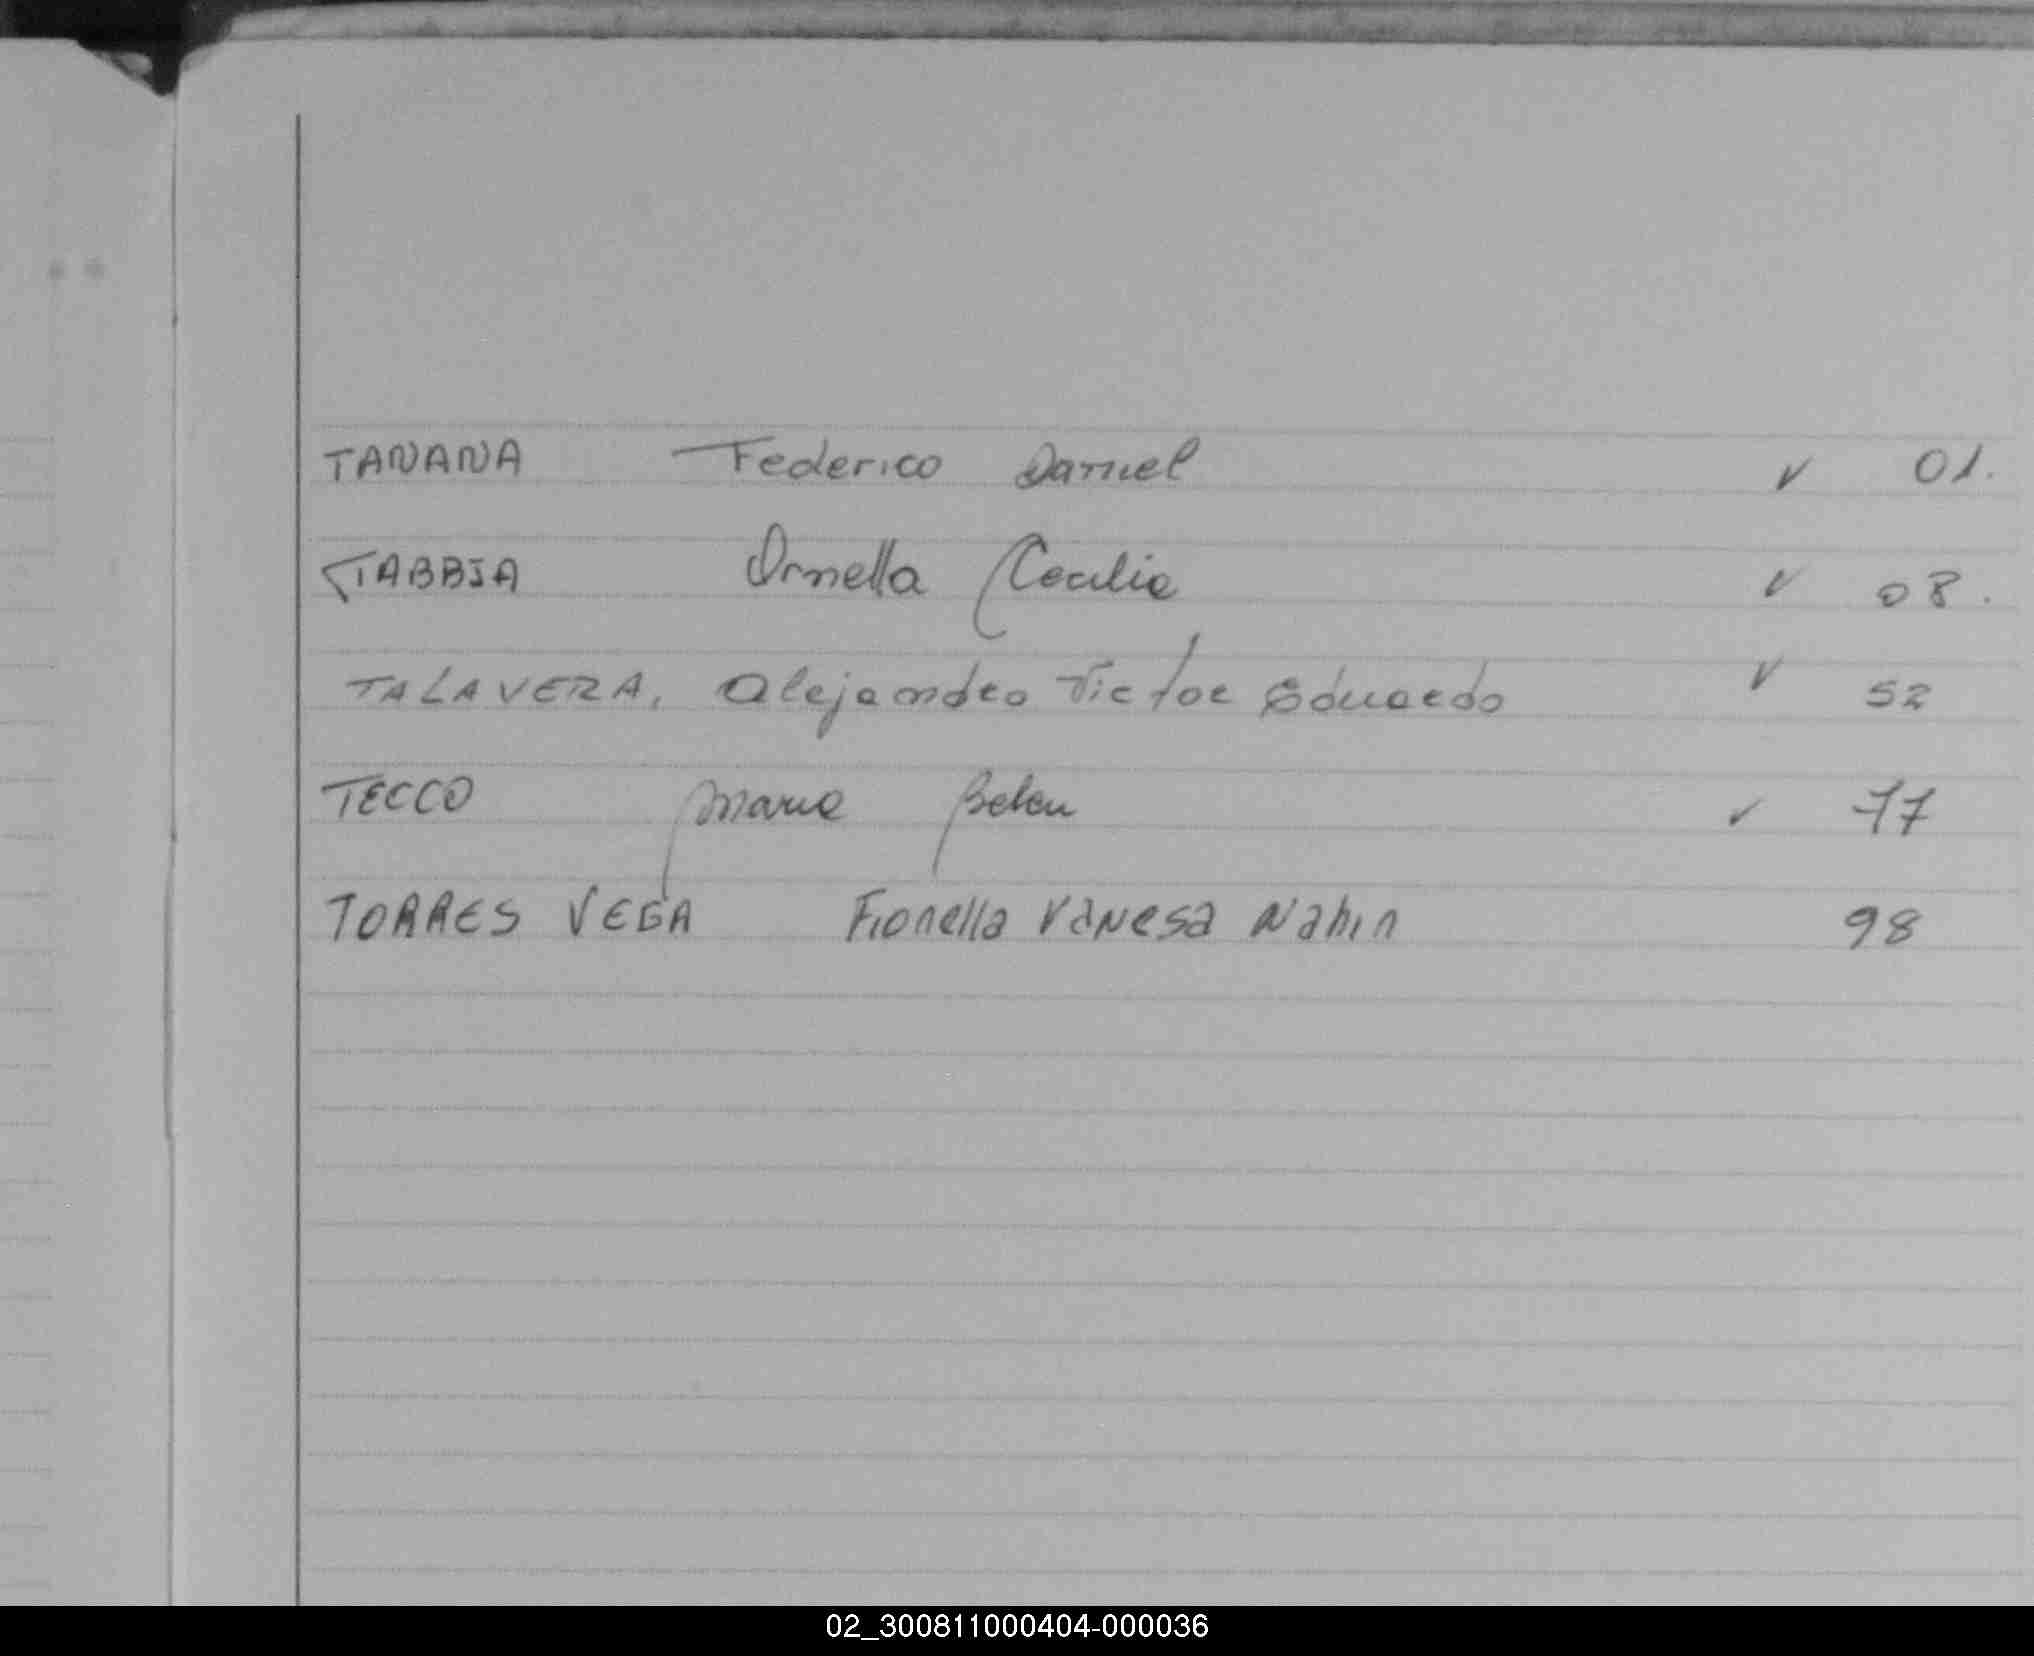 TANANA Federico Daniel ✓ 01.
TABBIA Ornella Cecilia ✓ 08.
TALAVERA, Alejandro Victor Eduardo ✓ 52
TECCO Maria Belen ✓ 77
TORRES VEGA Fionella Vanesa Nahin 98
02_300811000404-000036